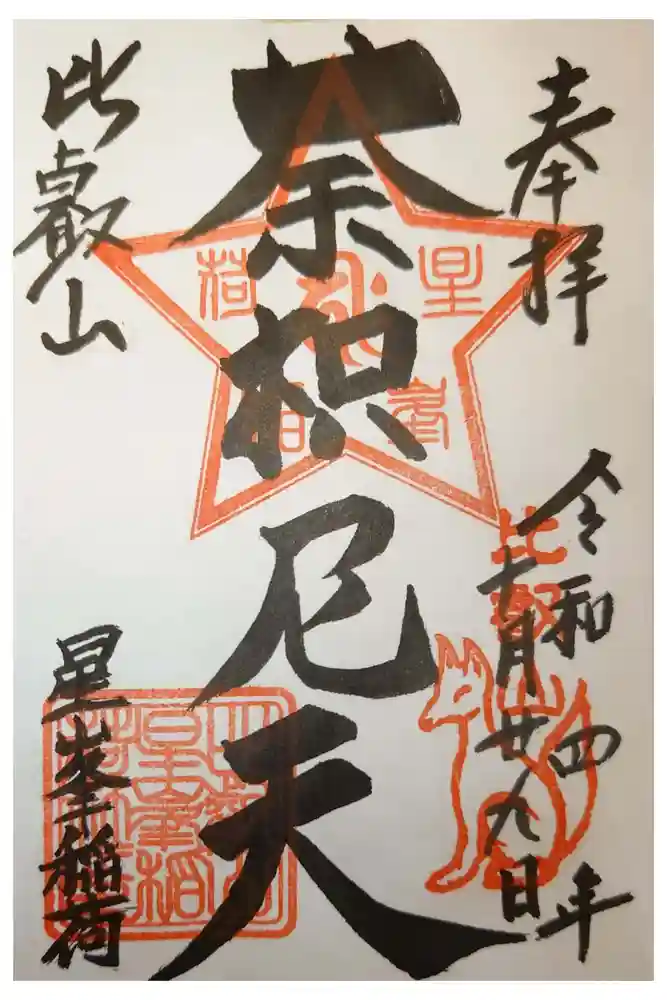 奉拝
令和四年
十月廿九日
荼枳尼天
比叡山
星峯稲荷
星峯稲荷
比叡山